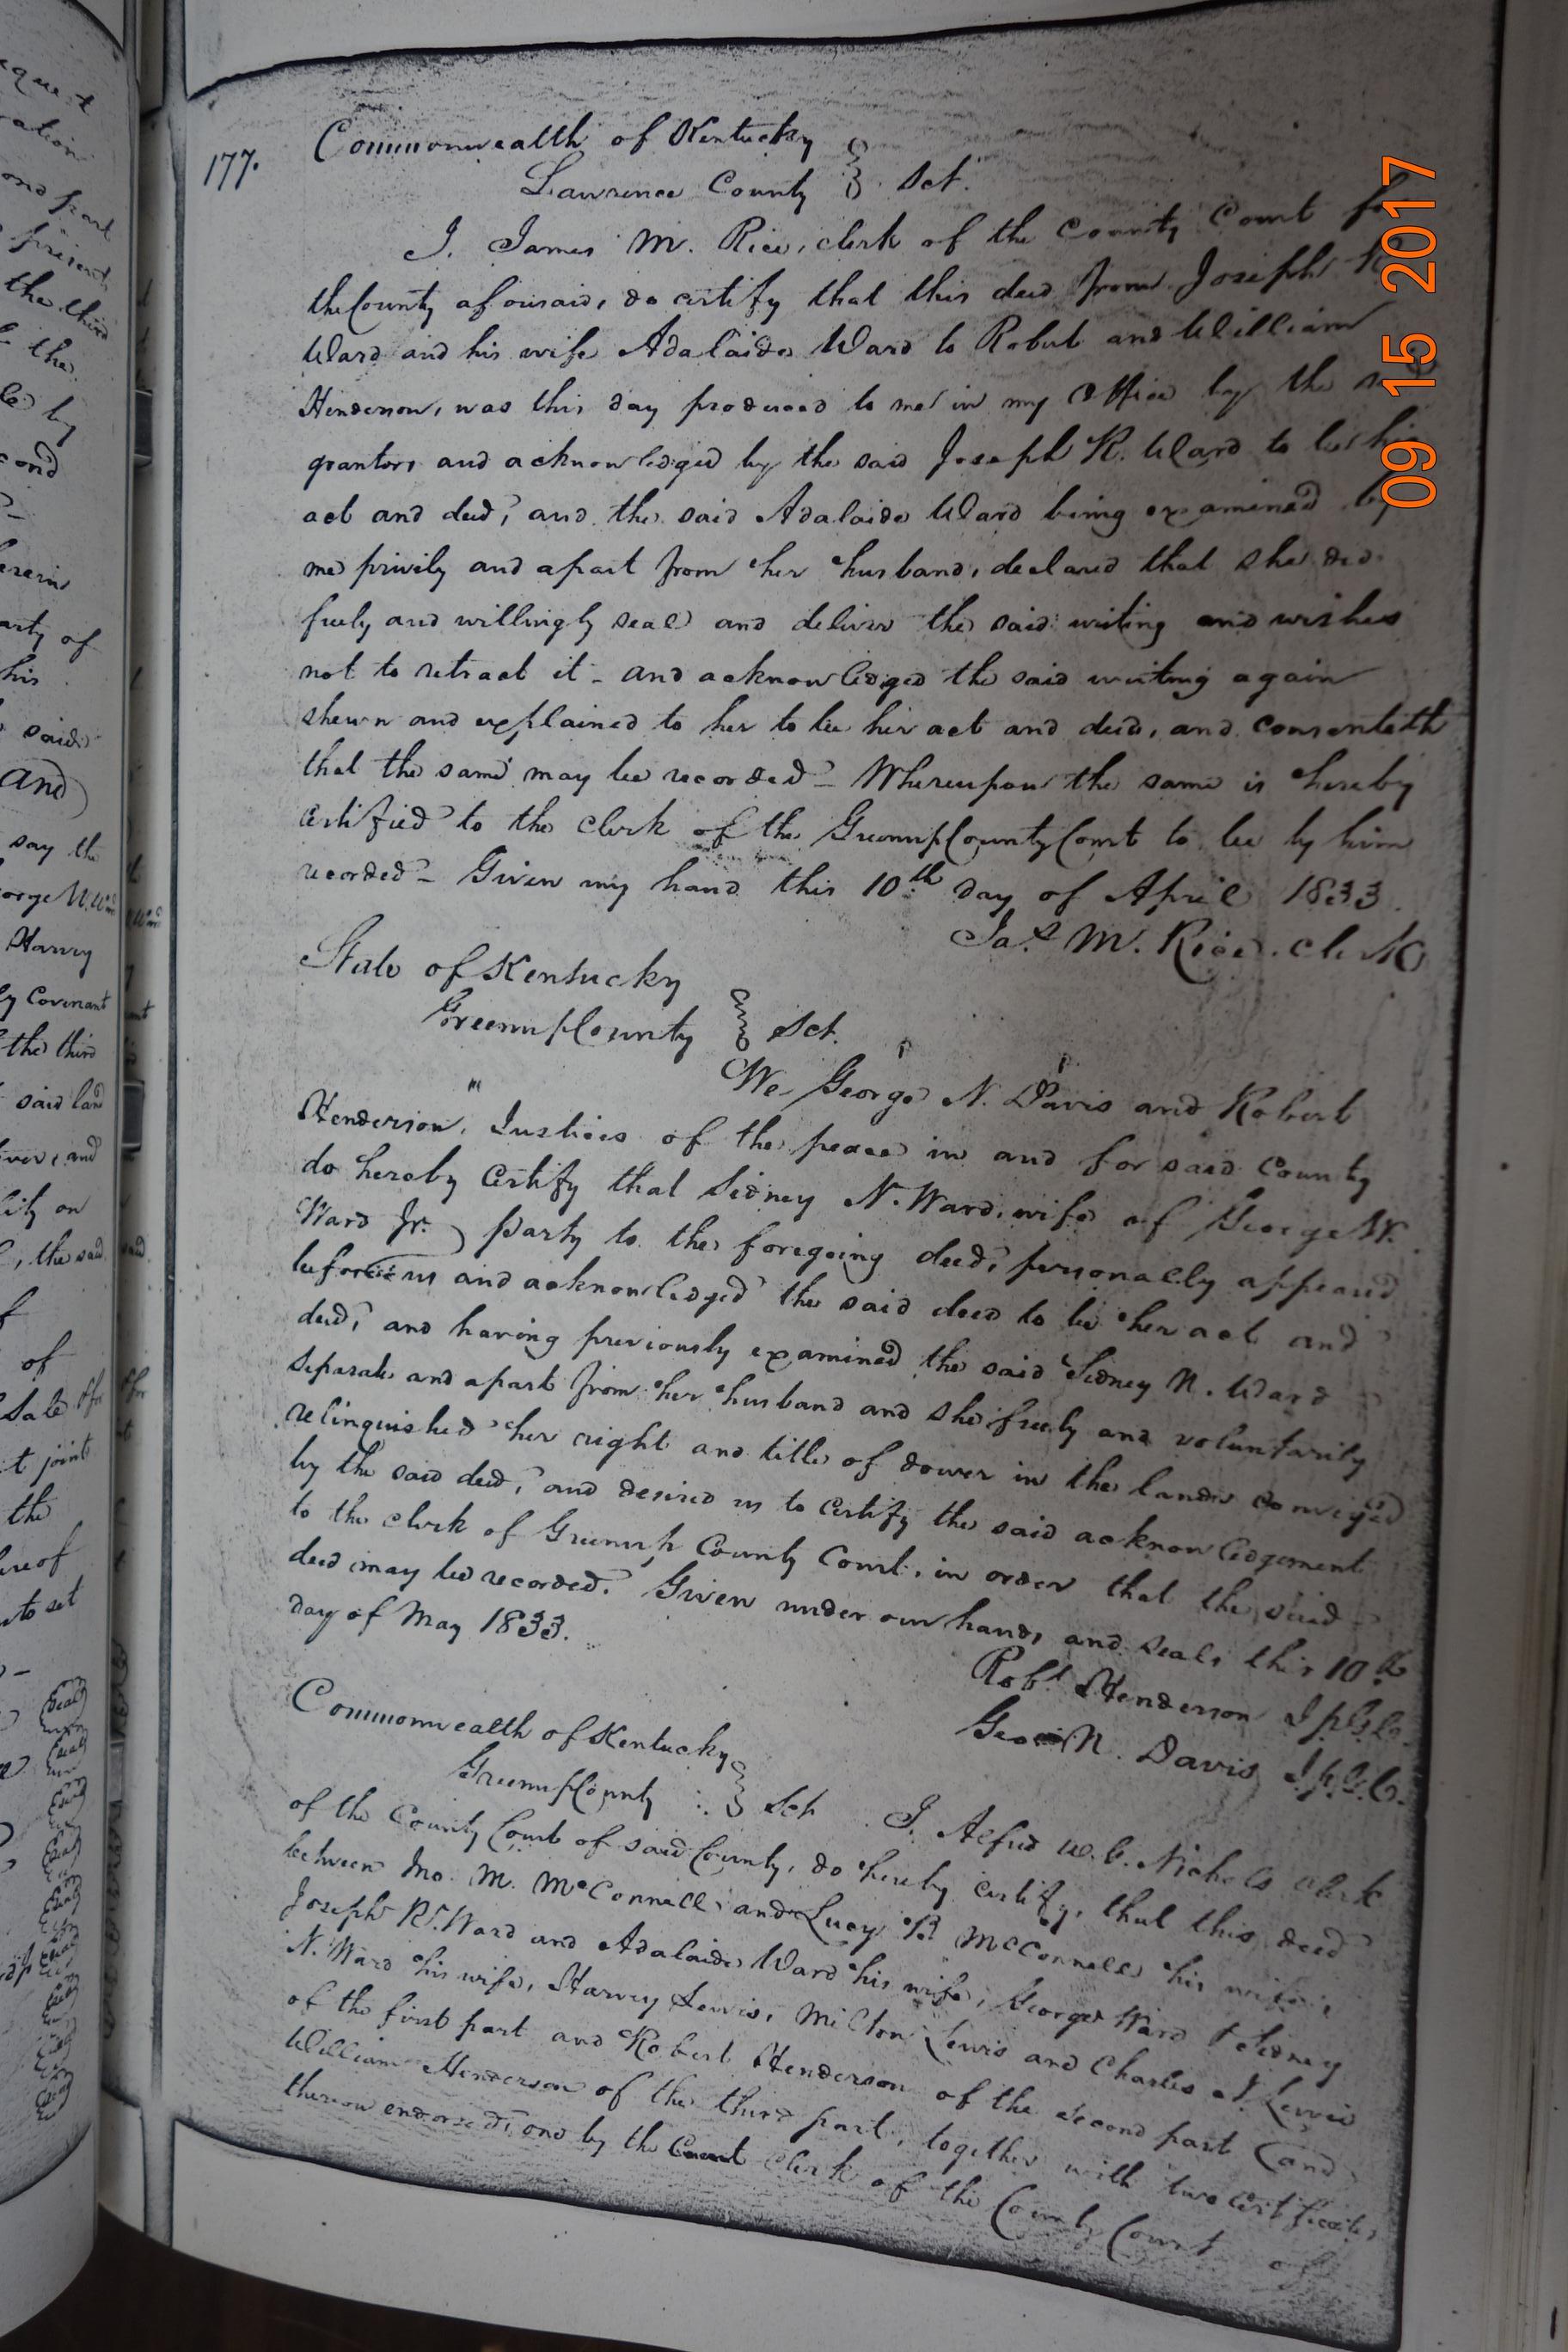 177.
Commonwealth of Kentucky
Lawrence County } Sct.
I. James M. Rice, clerk of the County Court for
the County aforesaid, do certify that this deed from Joseph R
Ward and his wife Adalaide Ward to Robert and William
Henderson, was this day produced to me in my Office by the
grantors and acknowledged by the said Joseph R. Ward to be his
act and deed, and the said Adalaide Ward being examined by
me privily and apart from her husband, declared that she did
freely and willingly seal and deliver the said writing and wishes
not to retract it - and acknowledged the said writing again
shewn and explained to her to be her act and deed, and consenteth
that the same may be recorded - Whereupon the same is hereby
certified to the clerk of the Greenup County Court to be by him
recorded - Given my hand this 10th day of April 1833.
Jas M. Rice. Clerk
State of Kentucky
Greenup County } Sct.
We George N. Davis and Robert
Henderson, Justices of the peace in and for said County
do hereby Certify that Sidney N. Ward, wife of George W.
Ward Jr. party to the foregoing deed, personally appeared
before us and acknowledged the said deed to be her act and
deed, and having previously examined the said Sidney N. Ward
separate and apart from her husband and she freely and voluntarily
relinquished her right and title of dower in the lands conveyed
by the said deed, and desired us to certify the said acknowledgement
to the clerk of Greenup County Court, in order that the said
deed may be recorded. Given under our hands and seals this 10th
day of May 1833.
Robt Henderson J.P.G.C.
Geo N. Davis J.P.G.C.
Commonwealth of Kentucky
Greenup County } Sct I. Alfred W.C. Nichols Clerk
of the County Court of said County, do hereby certify, that this deed
between Jno. M. McConnell, and Lucy P. McConnell his wife,
Joseph R. Ward and Adalaide Ward his wife, George Ward & Sidney
N. Ward his wife, Harvey Lewis, Milton Lewis and Charles N. Lewis
of the first part and Robert Henderson of the second part (and
William Henderson of the third part, together with two certificates
thereon endorsed, one by the clerk of the County Court of
09 15 2017